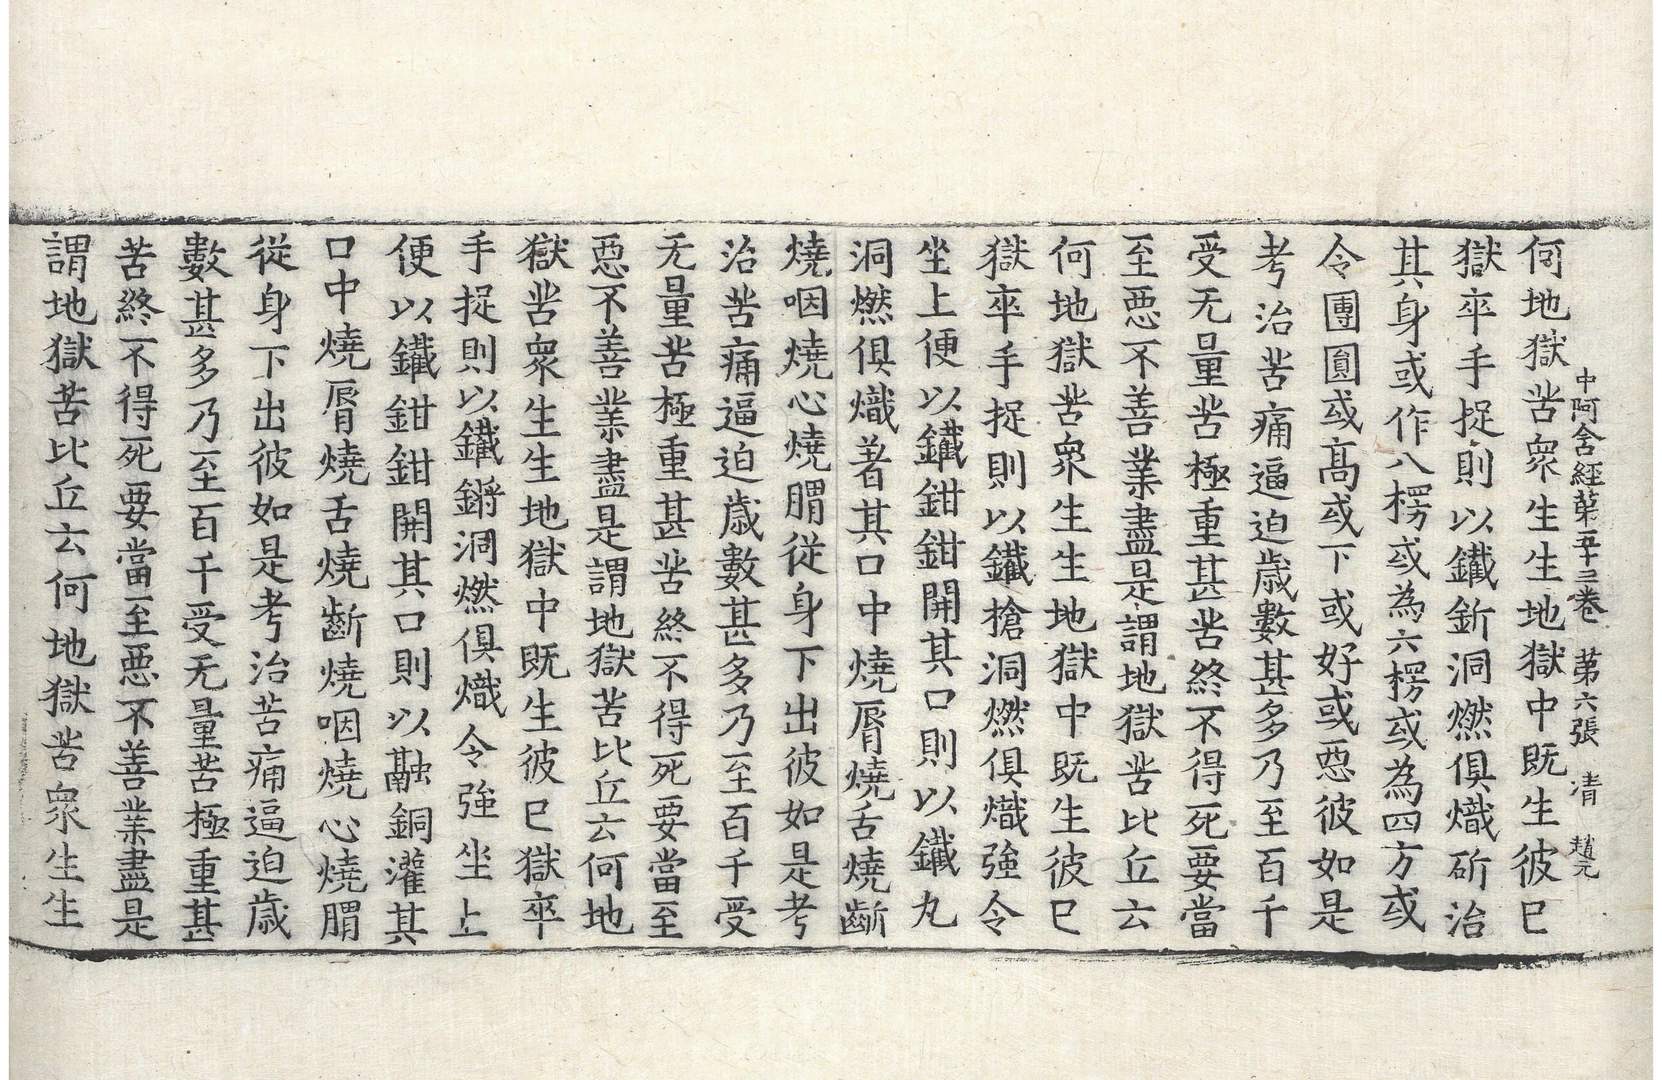 何地獄苦衆生生地獄中既生彼已
中阿含經第五十三卷 第六張 清 趙元
獄卒手捉則以鐵釿洞燃俱熾斫治
其身或作八楞或為六楞或為四方或
令團圓或高或下或好或惡彼如是
考治苦痛逼迫歲數甚多乃至百千
受无量苦極重甚苦終不得死要當
至惡不善業盡是謂地獄苦比丘云
何地獄苦衆生生地獄中既生彼已
獄卒手捉則以鐵槍洞燃俱熾強令
坐上便以鐵鉗鉗開其口則以鐵丸
洞燃俱熾著其口中燒脣燒舌燒齗
燒咽燒心燒胃從身下出彼如是考
治苦痛逼迫歲數甚多乃至百千受
无量苦極重甚苦終不得死要當至
惡不善業盡是謂地獄苦比丘云何地
獄苦衆生生地獄中既生彼已獄卒
手捉則以鐵鏘洞燃俱熾令強坐上
便以鐵鉗鉗開其口則以融銅灌其
口中燒脣燒舌燒齗燒咽燒心燒胃
從身下出彼如是考治苦痛逼迫歲
數甚多乃至百千受无量苦極重甚
苦終不得死要當至惡不善業盡是
謂地獄苦比丘云何地獄苦衆生生